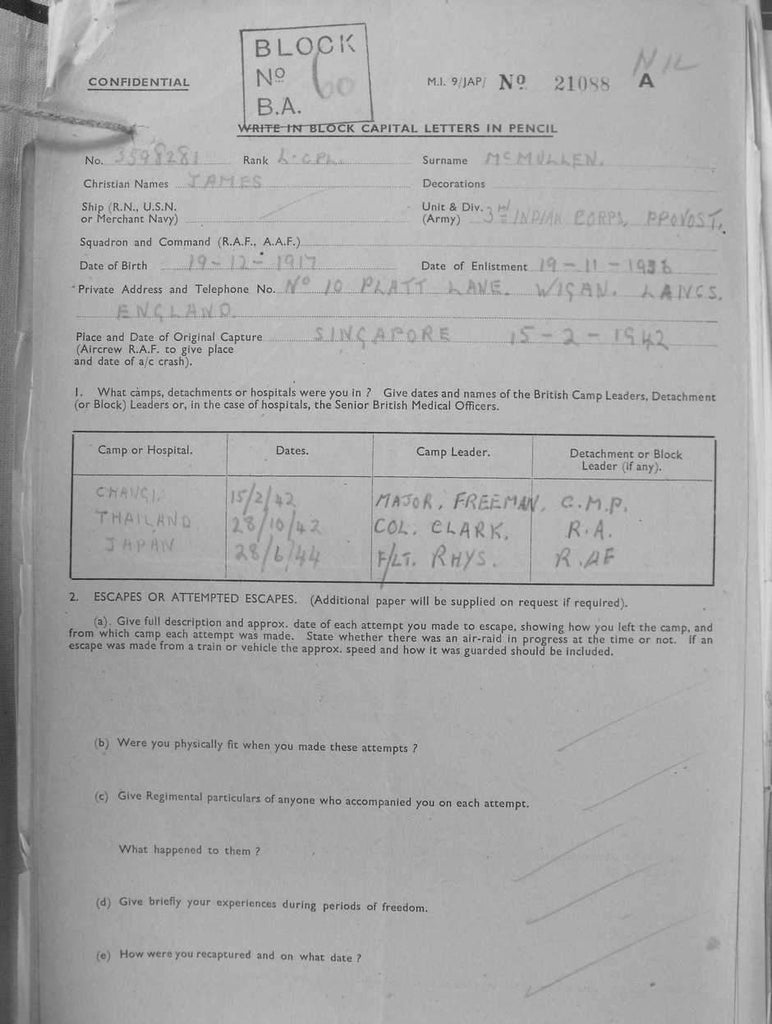 BLOCK
Nº 60
B.A.
NIL
CONFIDENTIAL
M.I. 9/JAP/ Nº 21088 A
WRITE IN BLOCK CAPITAL LETTERS IN PENCIL
No. 3598281 Rank L-CPL. Surname McMULLEN.
Christian Names JAMES Decorations
Ship (R.N., U.S.N. or Merchant Navy)
Unit & Div. (Army) 3RD INDIAN CORPS, PROVOST,
Squadron and Command (R.A.F., A.A.F.)
Date of Birth 19-12-1917 Date of Enlistment 19-11-1938
Private Address and Telephone No. Nº 10 PLATT LANE. WIGAN. LANCS.
ENGLAND.
Place and Date of Original Capture SINGAPORE 15-2-1942
(Aircrew R.A.F. to give place
and date of a/c crash).
1. What camps, detachments or hospitals were you in ? Give dates and names of the British Camp Leaders, Detachment
(or Block) Leaders or, in the case of hospitals, the Senior British Medical Officers.
Camp or Hospital. Dates. Camp Leader. Detachment or Block
Leader (if any).
CHANGI. 15/2/42 MAJOR. FREEMAN. C.M.P.
THAILAND 28/10/42 COL. CLARK. R.A.
JAPAN 28/6/44 F/LT. RHYS. R.AF
2. ESCAPES OR ATTEMPTED ESCAPES. (Additional paper will be supplied on request if required).
(a). Give full description and approx. date of each attempt you made to escape, showing how you left the camp, and
from which camp each attempt was made. State whether there was an air-raid in progress at the time or not. If an
escape was made from a train or vehicle the approx. speed and how it was guarded should be included.
(b) Were you physically fit when you made these attempts ?
(c) Give Regimental particulars of anyone who accompanied you on each attempt.
What happened to them ?
(d) Give briefly your experiences during periods of freedom.
(e) How were you recaptured and on what date ?